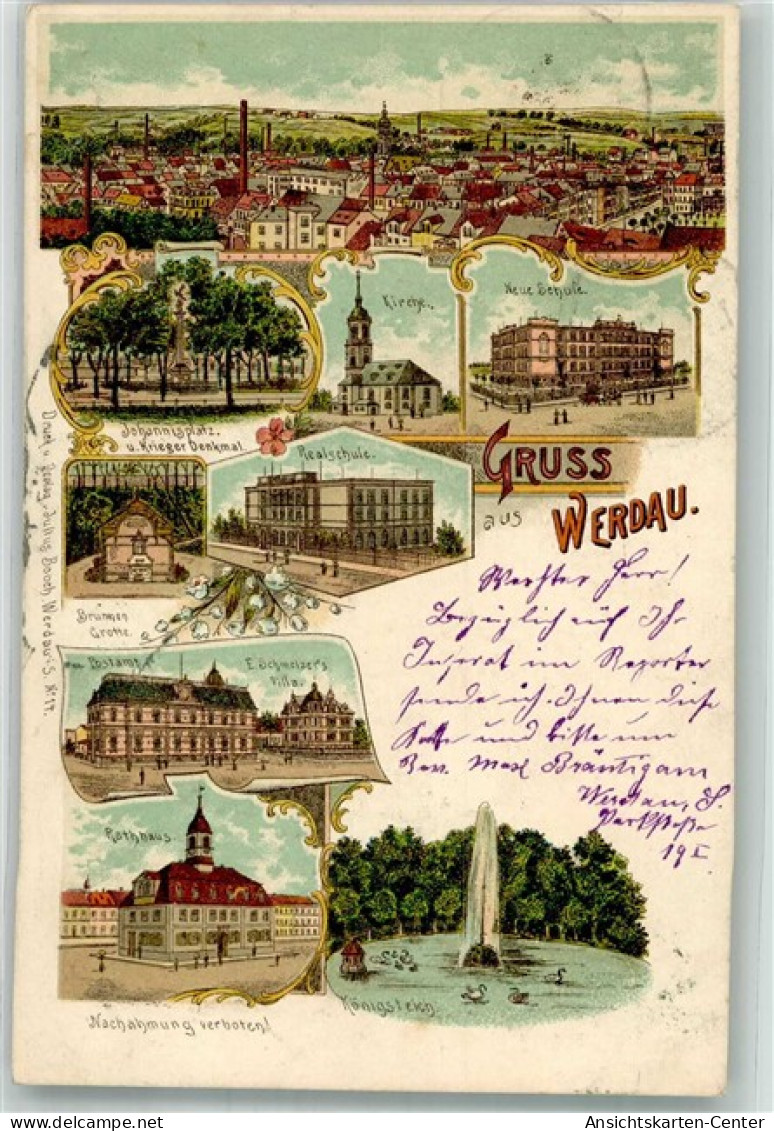 Kirche.
Neue Schule.
Johannisplatz.
u. Krieger Denkmal
Realschule.
GRUSS
aus
WERDAU.
Druck u. Verlag Julius Booch, Werdau i. S. No 17.
Brunnen
Grotte.
Postamt
E. Schmelzer's
Villa.
Rathhaus.
Königsteich
Nachahmung verboten!
Werther Herr!
Bezüglich auf Ihr
Inserat im Reporter
sende ich Ihnen diese
Karte und bitte um
Rev. Max Bräutigam
Werdau, S.
Parkstraße
19 I
Ansichtskarten-Center